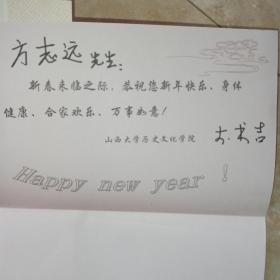 方志远先生：
新春来临之际，恭祝您新年快乐、身体
健康、合家欢乐、万事如意！
山西大学历史文化学院
书吉
Happy new year !